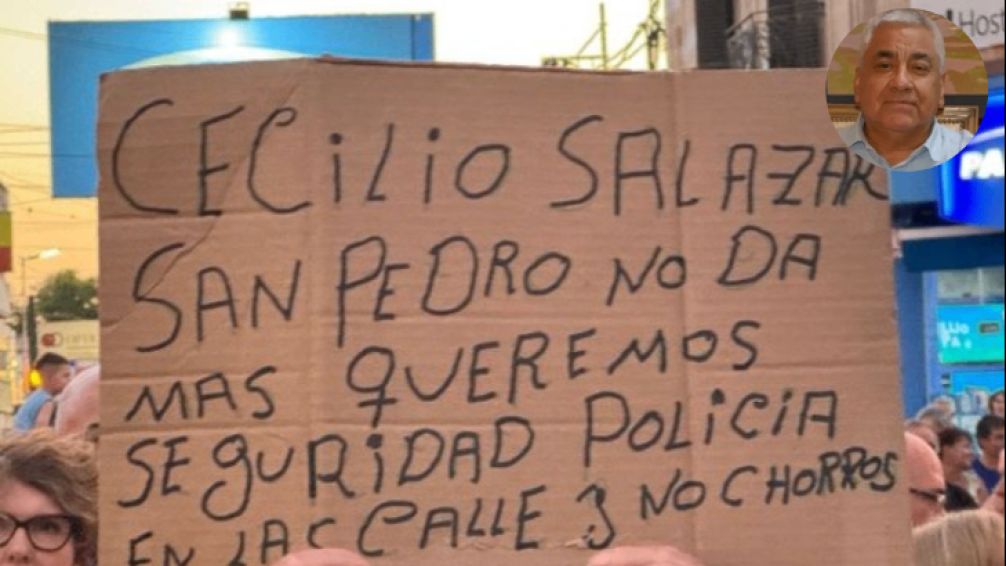 Host
CECILIO SALAZAR
SAN PEDRO NO DA
MAS QUEREMOS
SEGURIDAD POLICIA
EN LAS CALLE Y NO CHORROS
PA